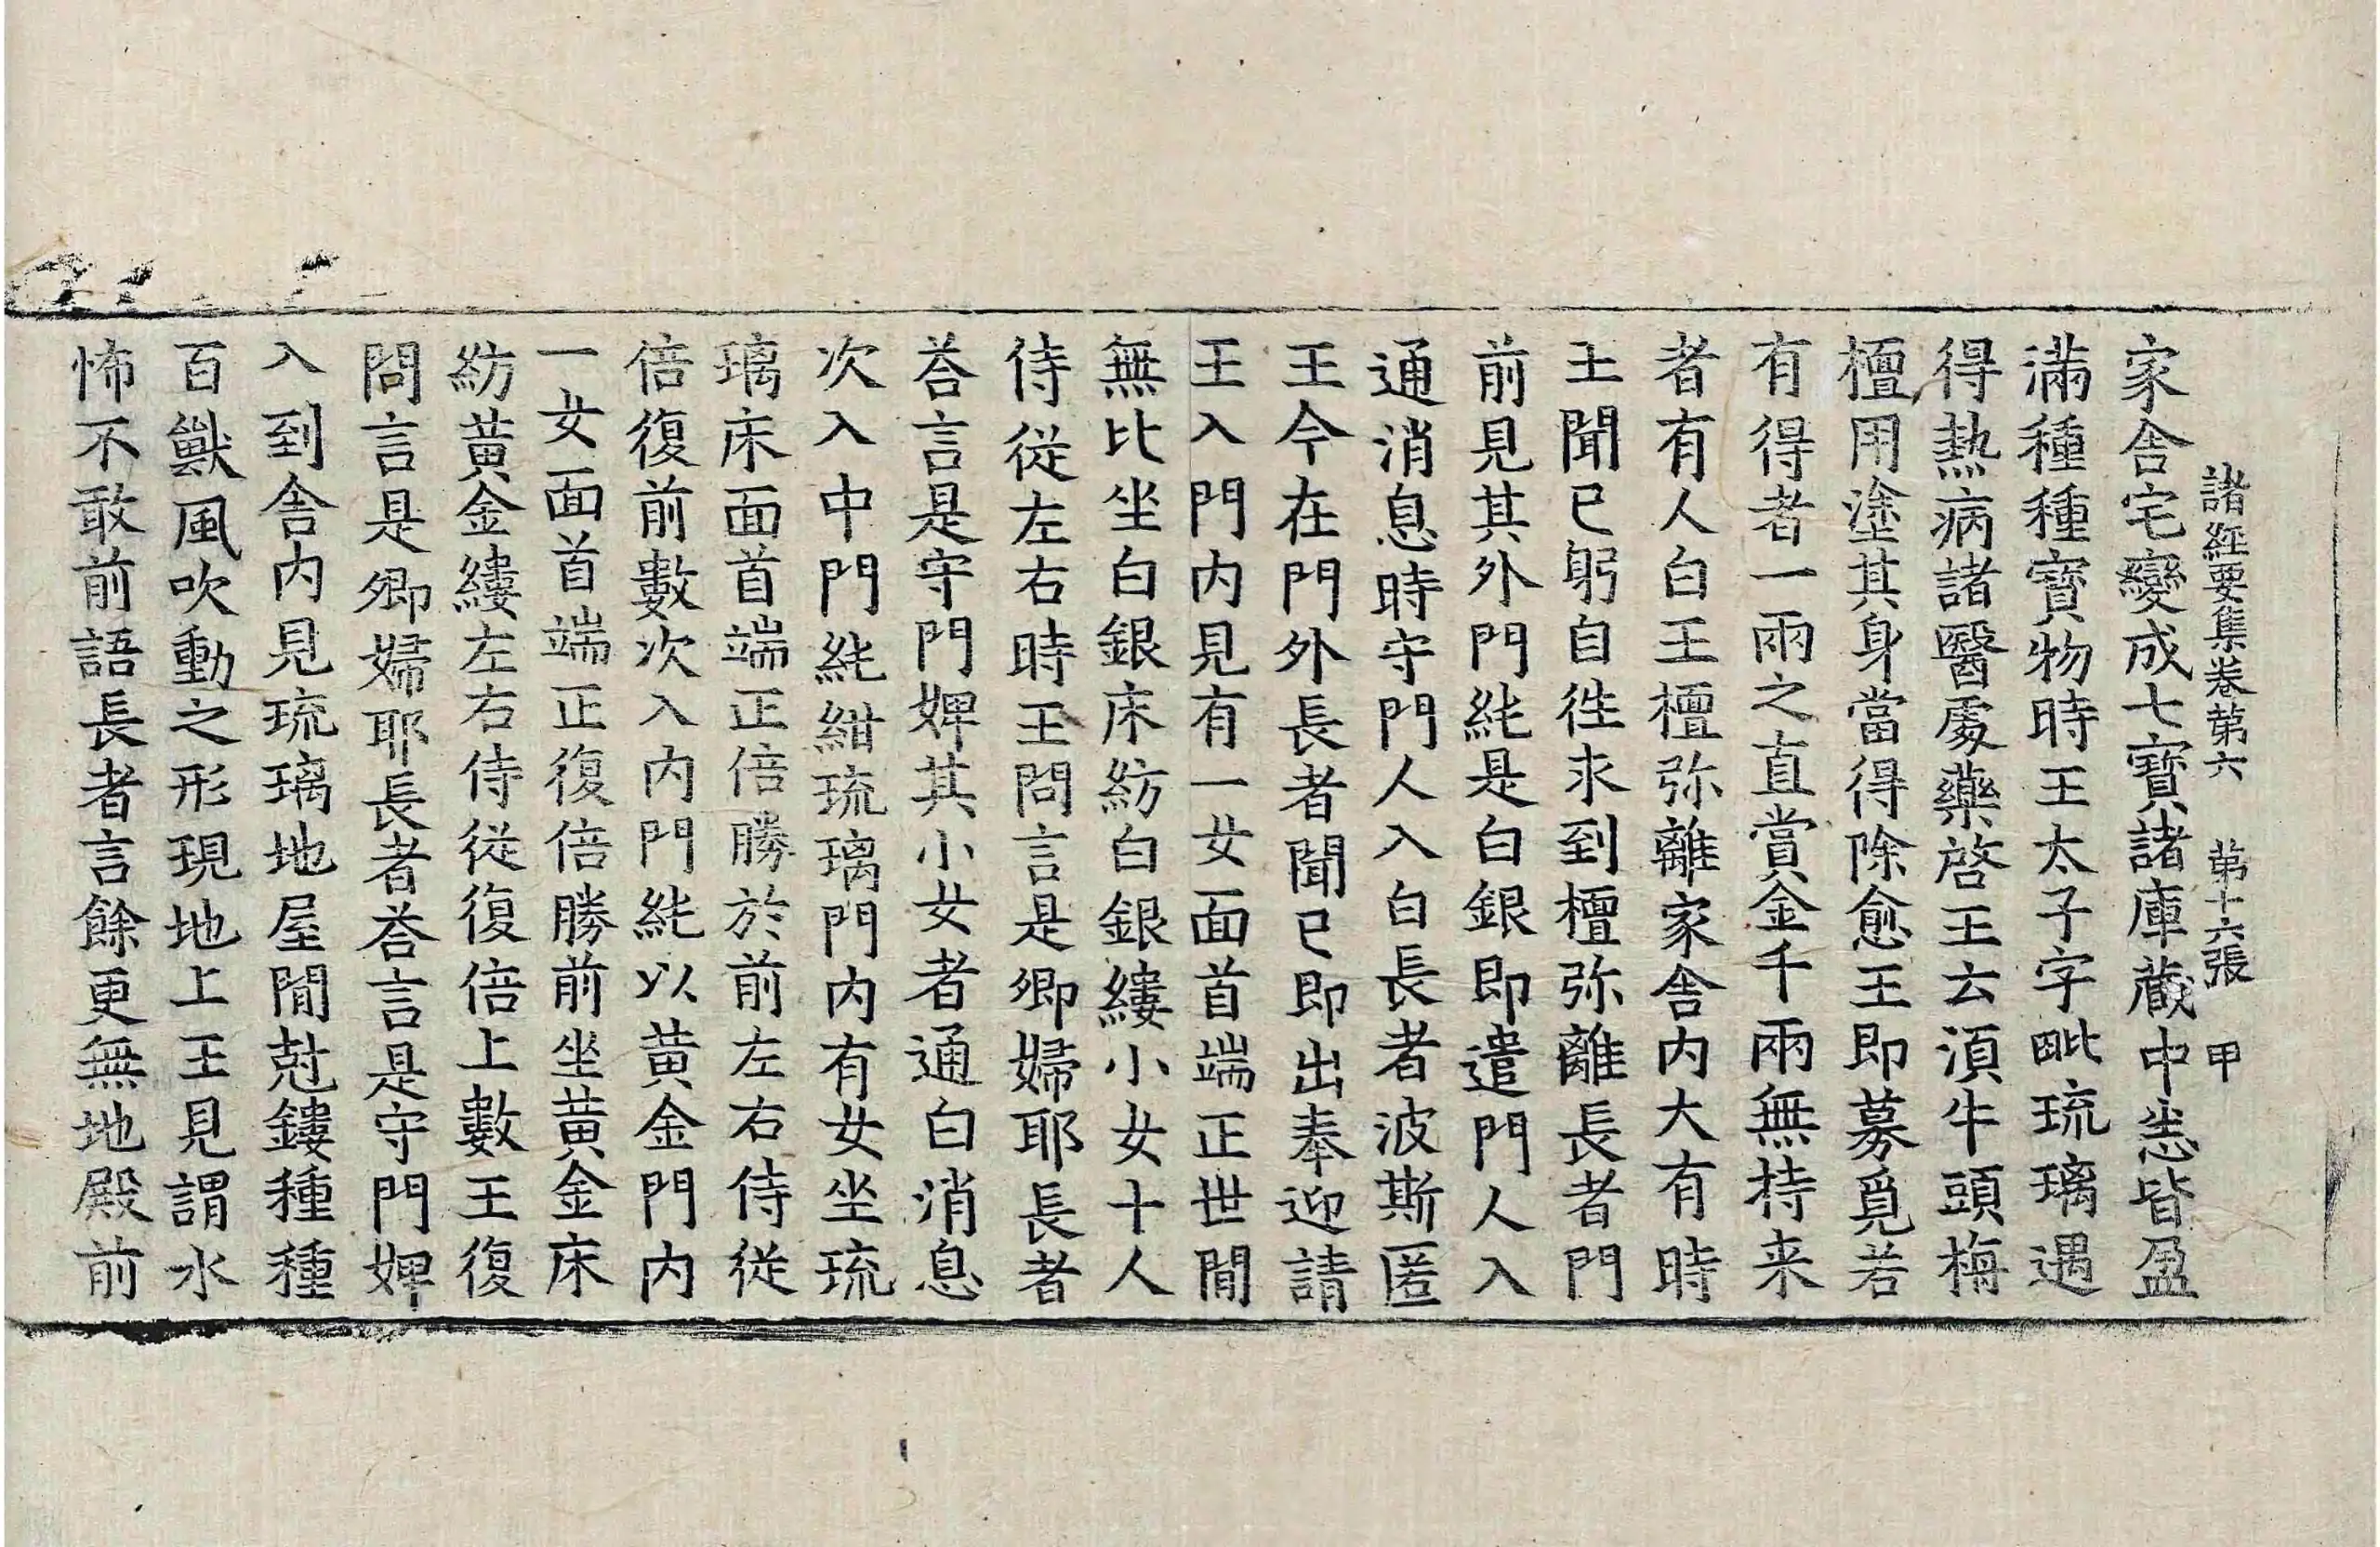 諸經要集卷第六 第十六張 甲
家舍宅變成七寶諸庫藏中悉皆盈
滿種種寶物時王太子字毗琉璃遇
得熱病諸醫處藥啓王云湏牛頭栴
檀用塗其身當得除愈王即募覓若
有得者一兩之直賞金千兩無持来
者有人白王檀弥離家舍内大有時
王聞已躬自徃求到檀弥離長者門
前見其外門純是白銀即遣門人入
通消息時守門人入白長者波斯匿
王今在門外長者聞已即出奉迎請
王入門内見有一女面首端正世閒
無比坐白銀床紡白銀縷小女十人
侍従左右時王問言是卿婦耶長者
荅言是守門婢其小女者通白消息
次入中門純紺琉璃門内有女坐琉
璃床面首端正倍勝於前左右侍従
倍復前數次入内門純以黄金門内
一女面首端正復倍勝前坐黄金床
紡黄金縷左右侍従復倍上數王復
問言是卿婦耶長者荅言是守門婢
入到舍内見琉璃地屋閒尅鏤種種
百獸風吹動之形現地上王見謂水
怖不敢前語長者言餘更無地殿前